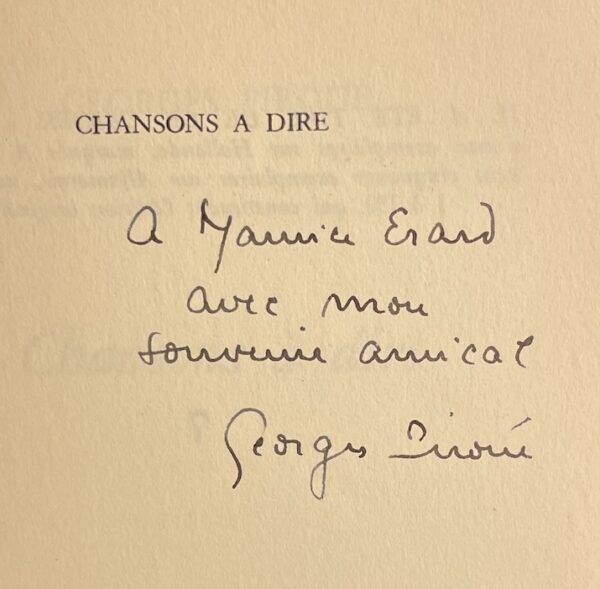 CHANSONS A DIRE
A Maurice Erard
avec mon
souvenir amical
Georges Piroué